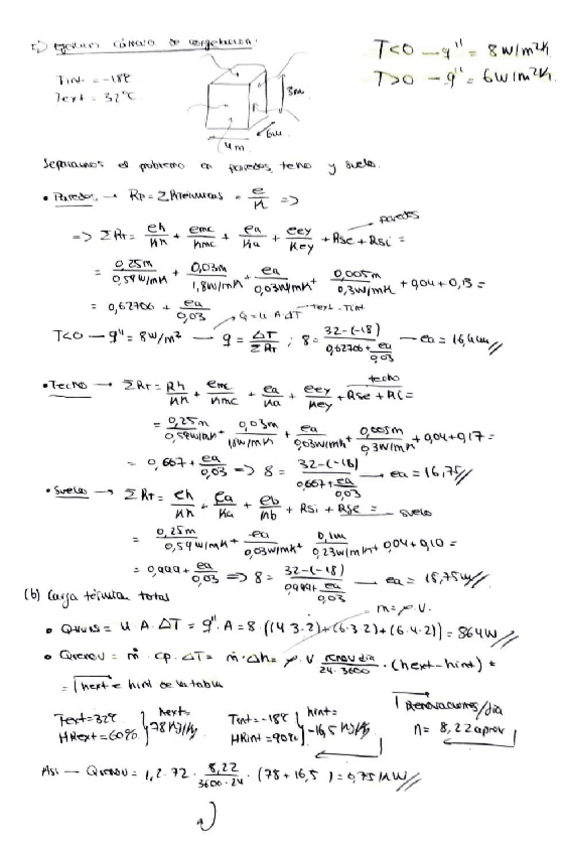 T<0 — q" = 8 W/m²K
T>0 — q" = 6 W/m²K
Tint = -18ºC
Text = 32ºC
3m
6m
4m
Separamos el problema en paredes, techo y suelo.
• Paredes → Rp = Σ = e/K =>
paredes
=> ΣRT = eh/Kh + emc/Kmc + ea/Ka + eey/Key + Rse + Rsi =
= 0,25m/0,54W/mK + 0,03m/1,8W/mK + ea/0,03W/mK + 0,005m/0,3W/mK + 0,04 + 0,13 =
= 0,62706 + ea/0,03
Q = U A ΔT → Text - Tint
T<0 — q" = 8W/m² — q = ΔT/ΣRT ; 8 = 32-(-18)/0,62706 + ea/0,03 — ea = 16,4cm
techo
• Techo → ΣRT = Rh/Kh + emc/Kmc + ea/Ka + eey/Key + Rse +
= 0,25m/0,54W/mK + 0,03m/1,8W/mK + ea/0,03W/mK + 0,005m/0,3W/mK + 0,04 + 0,17 =
= 0,667 + ea/0,03 => 8 = 32-(-18)/0,667 + ea/0,03 → ea = 16,75
• Suelo → ΣRT = eh/Kh + ea/Ka + eb/Kb + Rsi + Rse = suelo
= 0,25m/0,54W/mK + ea/0,03W/mK + 0,1m/0,23W/mK + 0,04 + 0,10 =
ea/0,03 => 8 = 32-(-18) ea/0,03 — ea = 18,75
(b) Carga térmica total
m = ρ.V.
• = U A. ΔT = q". A = 8. ((4 3.2)+(6.3.2)+(6.4.2)) = 864W
• Qrenov = ṁ. cp. ΔT = ṁ. Δh = ρ. V renov dia/24.3600 . (hext - hint) =
= hext e hint de la tabla
Text = 32ºC
HRext = 60%
hext = 78 KJ/Kg
Tint = -18ºC
HRint = 90%
hint = -16,5 KJ/Kg
Renovaciones/dia
n = 8,22 aprox
Así — Qrenov = 1,2. 72. 8,22/3600.24 . (78 + 16,5) = 0,75 KW